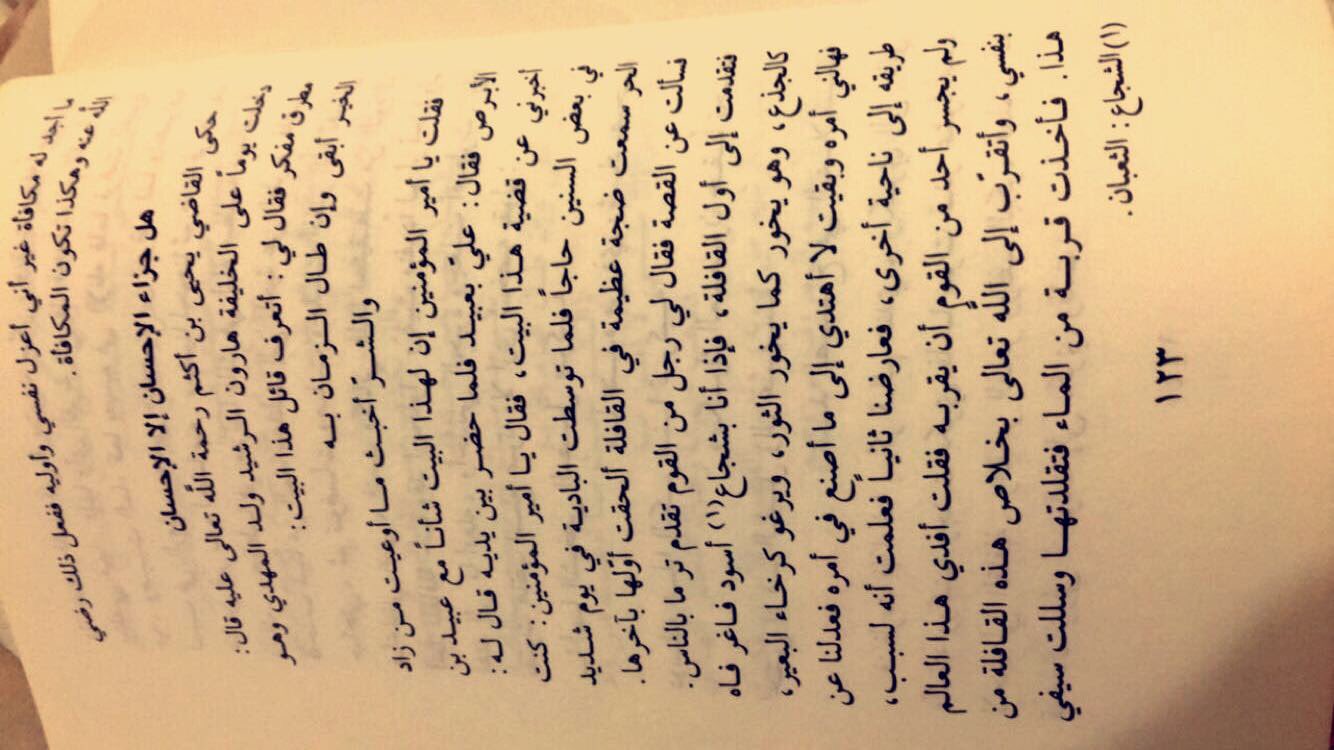 ما أجد له مكافأة غير أني أعزل نفسي وأوليه ففعل ذلك رضي
الله عنه وهكذا تكون المكافأة.
هل جزاء الإحسان إلا الإحسان
حكى القاضي يحيى بن أكثم رحمة الله تعالى عليه قال:
دخلت يوماً على الخليفة هارون الرشيد ولد المهدي وهو
مطرق مفكر فقال لي: أتعرف قائل هذا البيت:
الخير أبقى وإن طال الزمان به
والشر أخبث ما أوعيت من زاد
فقلت يا أمير المؤمنين إن لهذا البيت شأناً مع عبيد بن
الأبرص فقال: عليّ بعبيد فلما حضر بين يديه قال له:
أخبرني عن قضية هذا البيت، فقال يا أمير المؤمنين: كنت
في بعض السنين حاجاً فلما توسطت البادية في يوم شديد
الحر سمعت ضجة عظيمة في القافلة ألحقت أولها بآخرها.
فسألت عن القصة فقال لي رجل من القوم تقدم تر ما بالناس.
فتقدمت إلى أول القافلة، فإذا أنا بشجاع(١) أسود فاغر فاه
كالجذع، وهو يخور كما يخور الثور، ويرغو كرغاء البعير،
فهالني أمره وبقيت لا أهتدي إلى ما أصنع في أمره فعدلنا عن
طريقه إلى ناحية أخرى، فعارضنا ثانياً فعلمت أنه لسبب،
ولم يجسر أحد من القوم أن يقربه فقلت أفدي هذا العالم
بنفسي، وأتقرّب إلى الله تعالى بخلاص هذه القافلة من
هذا. فأخذت قربة من الماء فتقلدتها وسللت سيفي
(١) الشجاع: الثعبان.
١٢٣